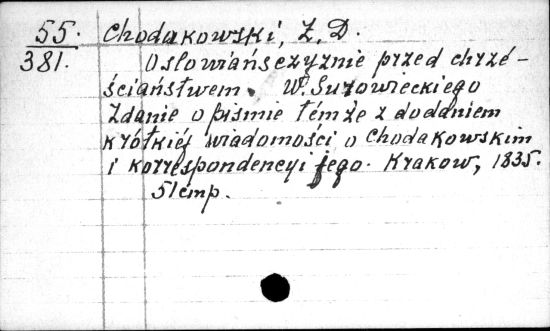 55.
381.
Chodakowski, Z. D.
O słowiańszczyznie przed chrze-
ściaństwem. W. Surowieckiego
Zdanie o piśmie témże z dodaniem
krótkiéj wiadomości o Chodakowskim
i korrespondencyi jego. Krakow, 1835.
51 стр.